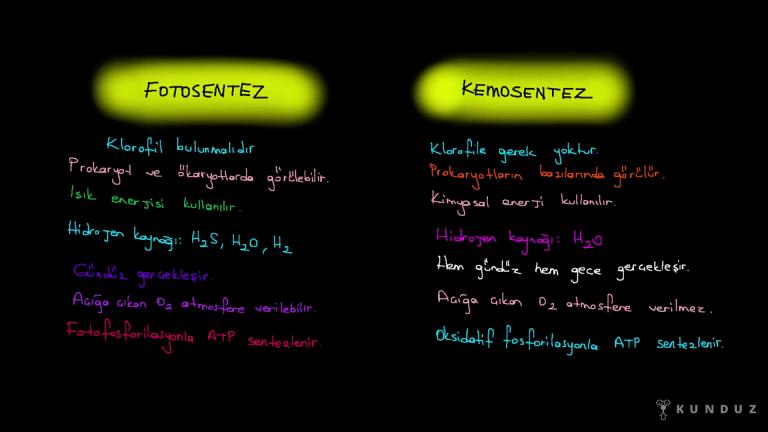 FOTOSENTEZ
Klorofil bulunmalıdır
Prokaryot ve ökaryotlarda görülebilir.
Işık enerjisi kullanılır.
Hidrojen kaynağı: H₂S, H₂O, H₂
Gündüz gerçekleşir.
Açığa çıkan O₂ atmosfere verilebilir.
Fotofosforilasyonla ATP sentezlenir.
KEMOSENTEZ
Klorofile gerek yoktur.
Prokaryotların bazılarında görülür.
Kimyasal enerji kullanılır.
Hidrojen kaynağı: H₂O
Hem gündüz hem gece gerçekleşir.
Açığa çıkan O₂ atmosfere verilmez.
Oksidatif fosforilasyonla ATP sentezlenir.
KUNDUZ